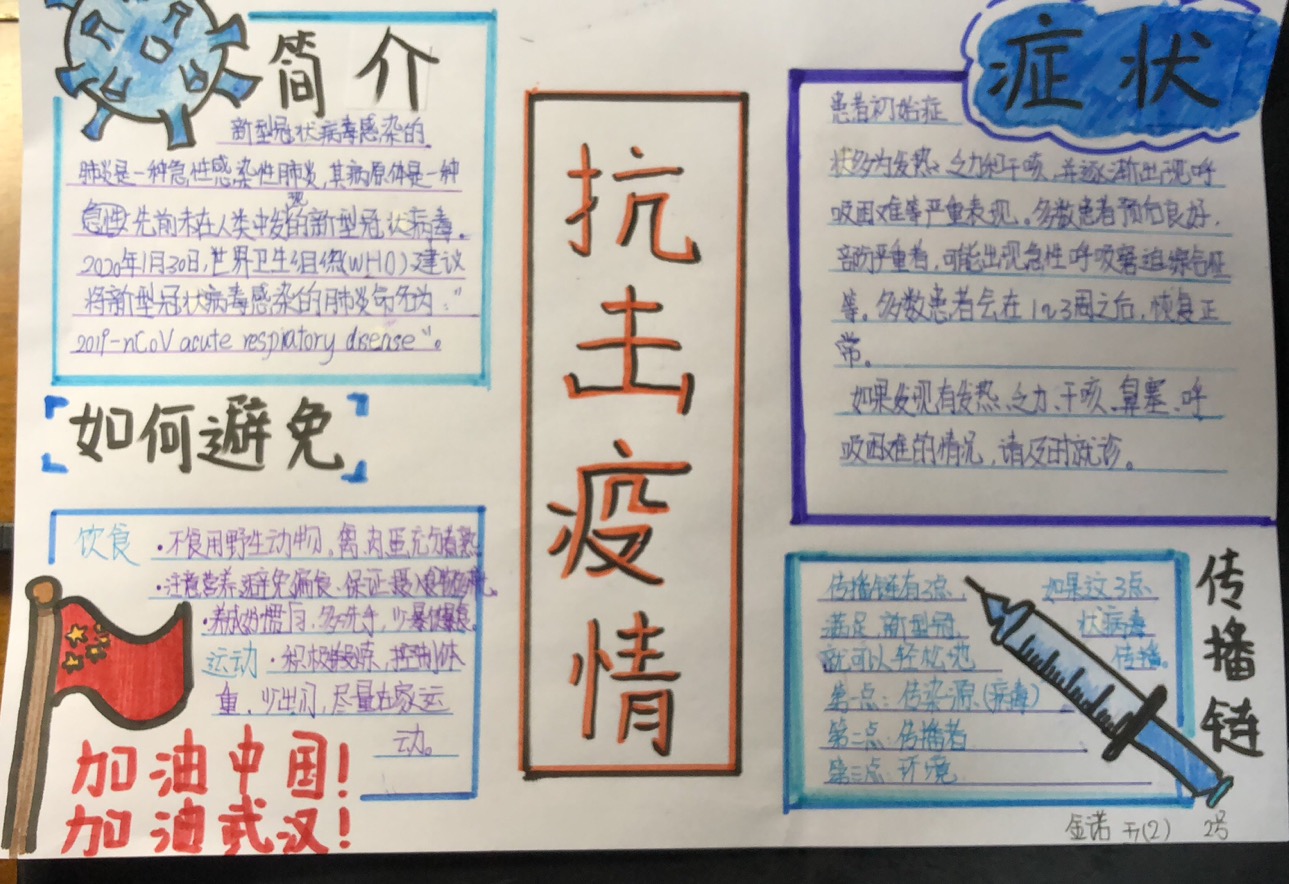 简介
新型冠状病毒感染的
肺炎是一种急性感染性肺炎，其病原体是一种
先前未在人类中发现的新型冠状病毒。
2020年1月30日，世界卫生组织(WHO)建议
将新型冠状病毒感染的肺炎命名为："
2019-nCoV acute respiratory disease"。
如何避免
饮食 ·不食用野生动物，禽、肉、蛋充分煮熟
·注意营养，避免偏食、保证摄入
·养成好惯，多洗手，少暴饮暴食。
运动 ·积极锻炼，控制体
重，少出门，尽量在家运
动。
加油中国！
加油武汉！
抗击疫情
症状
患者初始症
状多为发热、乏力和干咳，并逐渐出现呼
吸困难等严重表现。多数患者预后良好，
部份严重者，可能出现急性呼吸窘迫综合征
等。多数患者会在1~3周之后，恢复正
常。
如果发现有发热、乏力、干咳、鼻塞、呼
吸困难的情况，请及时就诊。
传播链
传播链有3点， 如果这3点
满足，新型冠 状病毒
就可以轻松地 传播。
第一点：传染源(病毒)
第二点：传播者
第三点：环境
金诺 五(2) 2号